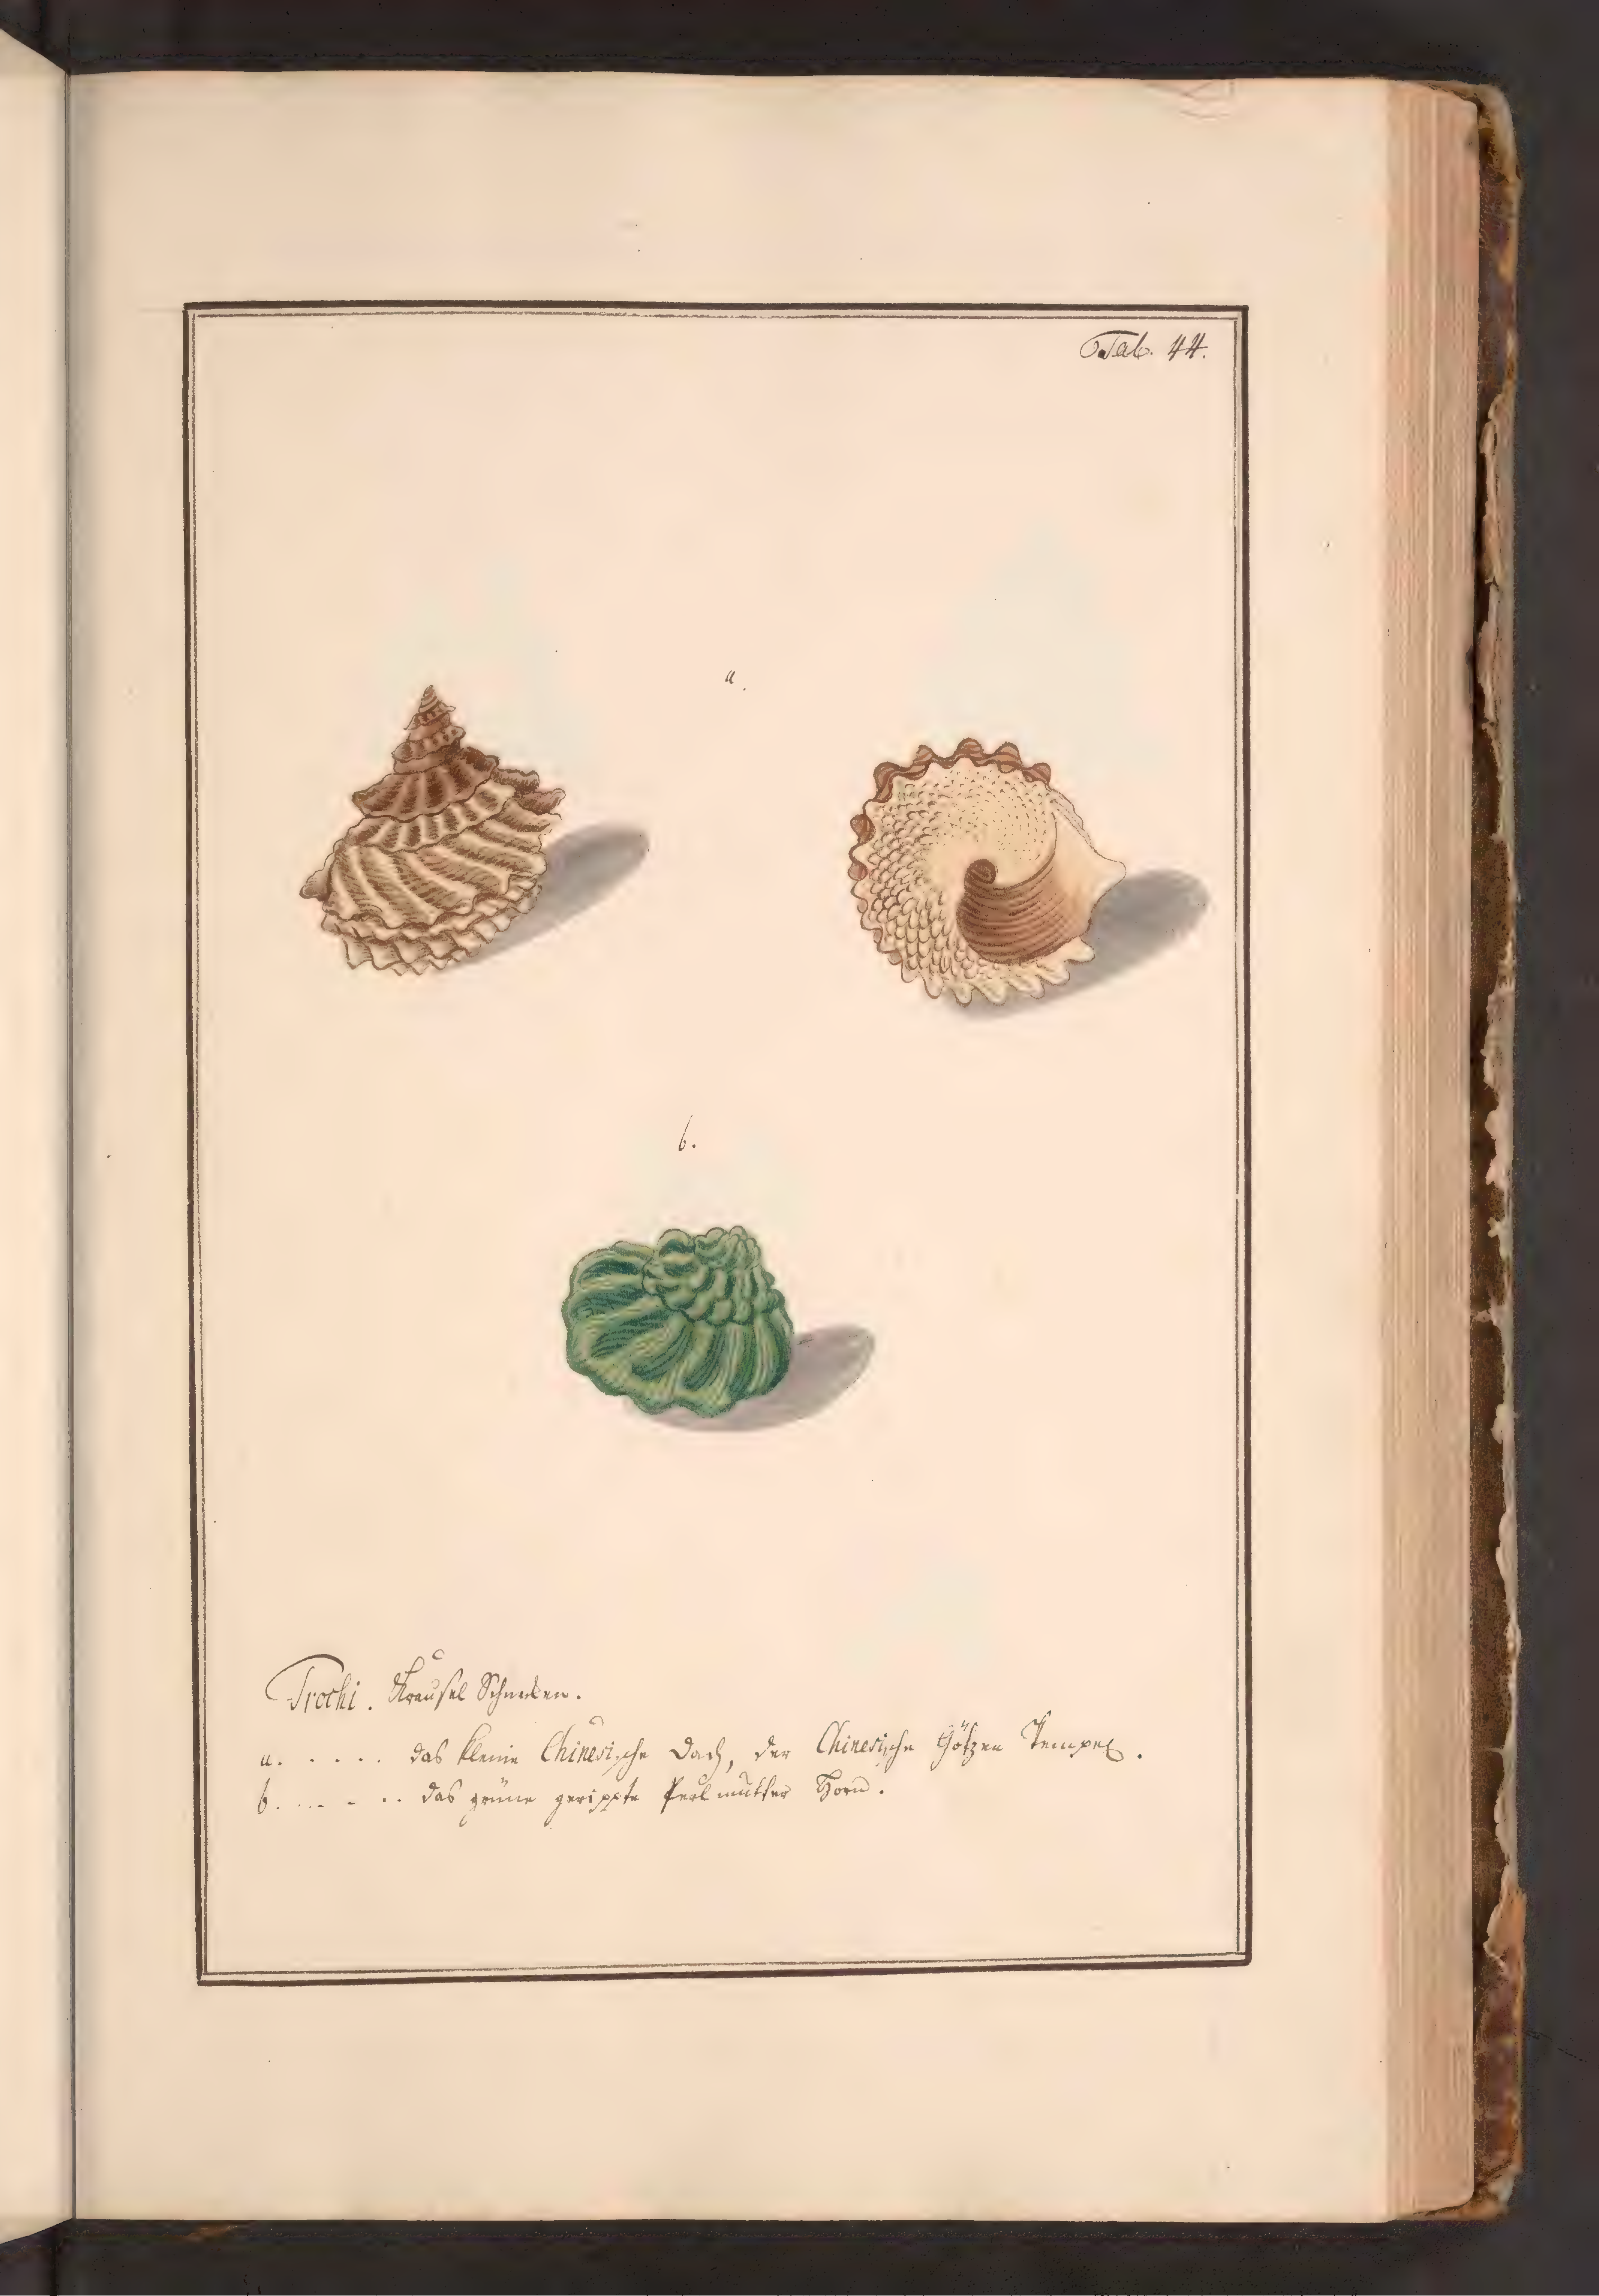 Tab. 44.
a.
b.
Trochi. Kräusel Schnecken.
a. . . . . das kleine Chinesische Dach, der Chinesische Götzen Tempel.
b. . . . . . das grüne gerippte Perlmutter Horn.